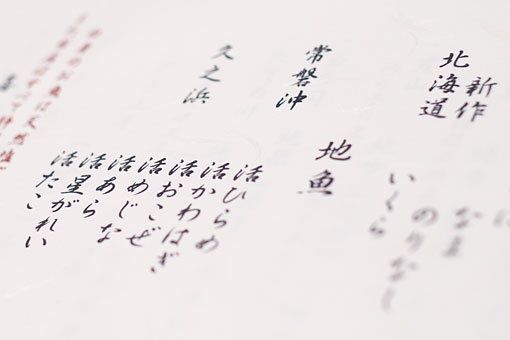 新作
北海道
のりなし
いくら
常磐沖
地魚
活ひらめ
活かわはぎ
活おこぜ
活めじな
活あら
活星がれい
活たこ
久之浜